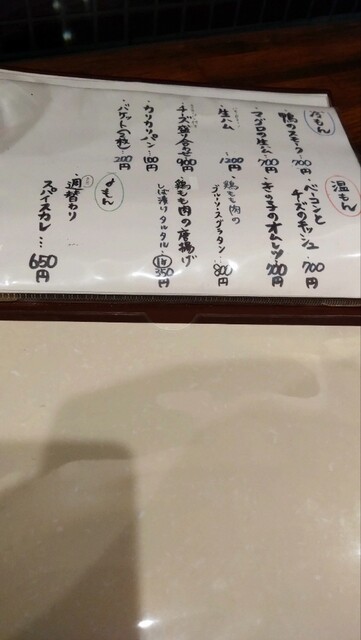 冷もん
・鴨のスモーク 700円
・マグロの生ハム 700円
・生ハム 1200円
・チーズ盛り合わせ 900円
・カリカリパン 100円
・バゲット(2枚) 200円
温もん
・ベーコンと
チーズのキッシュ 700円
・きのこのオムレツ 700円
鶏もも肉の
ブルーツ・スグラタン 800円
鶏もも肉の唐揚げ
しば漬けタルタル 1ヶ350円
〆もん
・週替わり
スパイスカレー… 650円